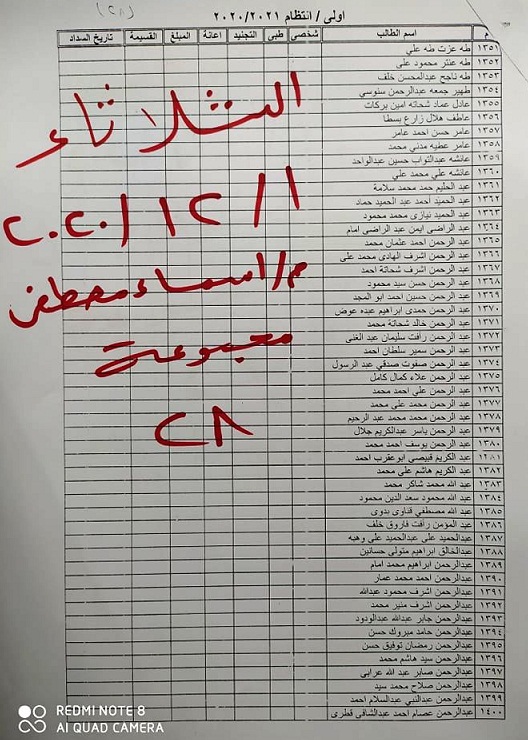 (٢٨)
اولى / انتظام ٢٠٢٠/٢٠٢١
م اسم الطالب شخصي طبى التجنيد اعانة المبلغ القسيمة تاريخ السداد
١٣٥١ طه عزت طه علي
١٣٥٢ طه عنتر محمود علي
١٣٥٣ طه ناجح عبدالمحسن خلف
١٣٥٤ طهير جمعه عبدالرحمن سنوسي
١٣٥٥ عادل عماد شحاته امين بركات
١٣٥٦ عاطف هلال زارع بسطا
١٣٥٧ عامر حسن احمد عامر
١٣٥٨ عامر عطيه مدني محمد
١٣٥٩ عائشه عبدالتواب حسين عبدالواحد
١٣٦٠ عائشه علي محمد علي
١٣٦١ عبد الحليم حمد محمد سلامة
١٣٦٢ عبد الحميد احمد عبد الحميد حماد
١٣٦٣ عبد الحميد نيازى محمد محمود
١٣٦٤ عبد الراضى ايمن عبد الراضى امام
١٣٦٥ عبد الرحمن احمد عثمان محمد
١٣٦٦ عبد الرحمن اشرف الهادى محمد على
١٣٦٧ عبد الرحمن اشرف شحاتة احمد
١٣٦٨ عبد الرحمن حسن سيد محمود
١٣٦٩ عبد الرحمن حسين احمد ابو المجد
١٣٧٠ عبد الرحمن حمدى ابراهيم عبده عوض
١٣٧١ عبد الرحمن خالد شحاتة محمد
١٣٧٢ عبد الرحمن رافت سليمان عبد الغنى
١٣٧٣ عبد الرحمن سمير سلطان احمد
١٣٧٤ عبد الرحمن صفوت صدقي عبد الرسول
١٣٧٥ عبد الرحمن علاء كمال كامل
١٣٧٦ عبد الرحمن على احمد محمد
١٣٧٧ عبد الرحمن محمد على محمد
١٣٧٨ عبد الرحمن محمد محمد عبد الرحيم
١٣٧٩ عبد الرحمن ياسر عبدالكريم جلال
١٣٨٠ عبد الرحمن يوسف احمد محمد
١٣٨١ عبد الكريم قبيصي ابوعقرب احمد
١٣٨٢ عبد الكريم هاشم على محمد
١٣٨٣ عبد الله محمد شاكر محمد
١٣٨٤ عبد الله محمود سعد الدين محمود
١٣٨٥ عبد الله مصطفي قناوى بدوى
١٣٨٦ عبد المؤمن رأفت فاروق خلف
١٣٨٧ عبدالحميد على عبدالحميد على وهبه
١٣٨٨ عبدالخالق ابراهيم متولى حسانين
١٣٨٩ عبدالرحمن ابراهيم محمد امام
١٣٩٠ عبدالرحمن احمد محمد عمار
١٣٩١ عبدالرحمن اشرف محمود عبدالله
١٣٩٢ عبدالرحمن اشرف منير محمد
١٣٩٣ عبدالرحمن جابر عبدالله عبدالودود
١٣٩٤ عبدالرحمن حامد مبروك حسن
١٣٩٥ عبدالرحمن رمضان توفيق حسن
١٣٩٦ عبدالرحمن سيد هاشم محمد
١٣٩٧ عبدالرحمن صابر عبد الله عرابي
١٣٩٨ عبدالرحمن صلاح محمد سيد
١٣٩٩ عبدالرحمن عبدالنبي عبدالسلام احمد
١٤٠٠ عبدالرحمن عصام احمد عبدالشافى قطرى
الثلاثاء
١ / ١٢ / ٢٠٢٠
م/ اسماء مصطفى
مجموعة
٢٨
REDMI NOTE 8
AI QUAD CAMERA